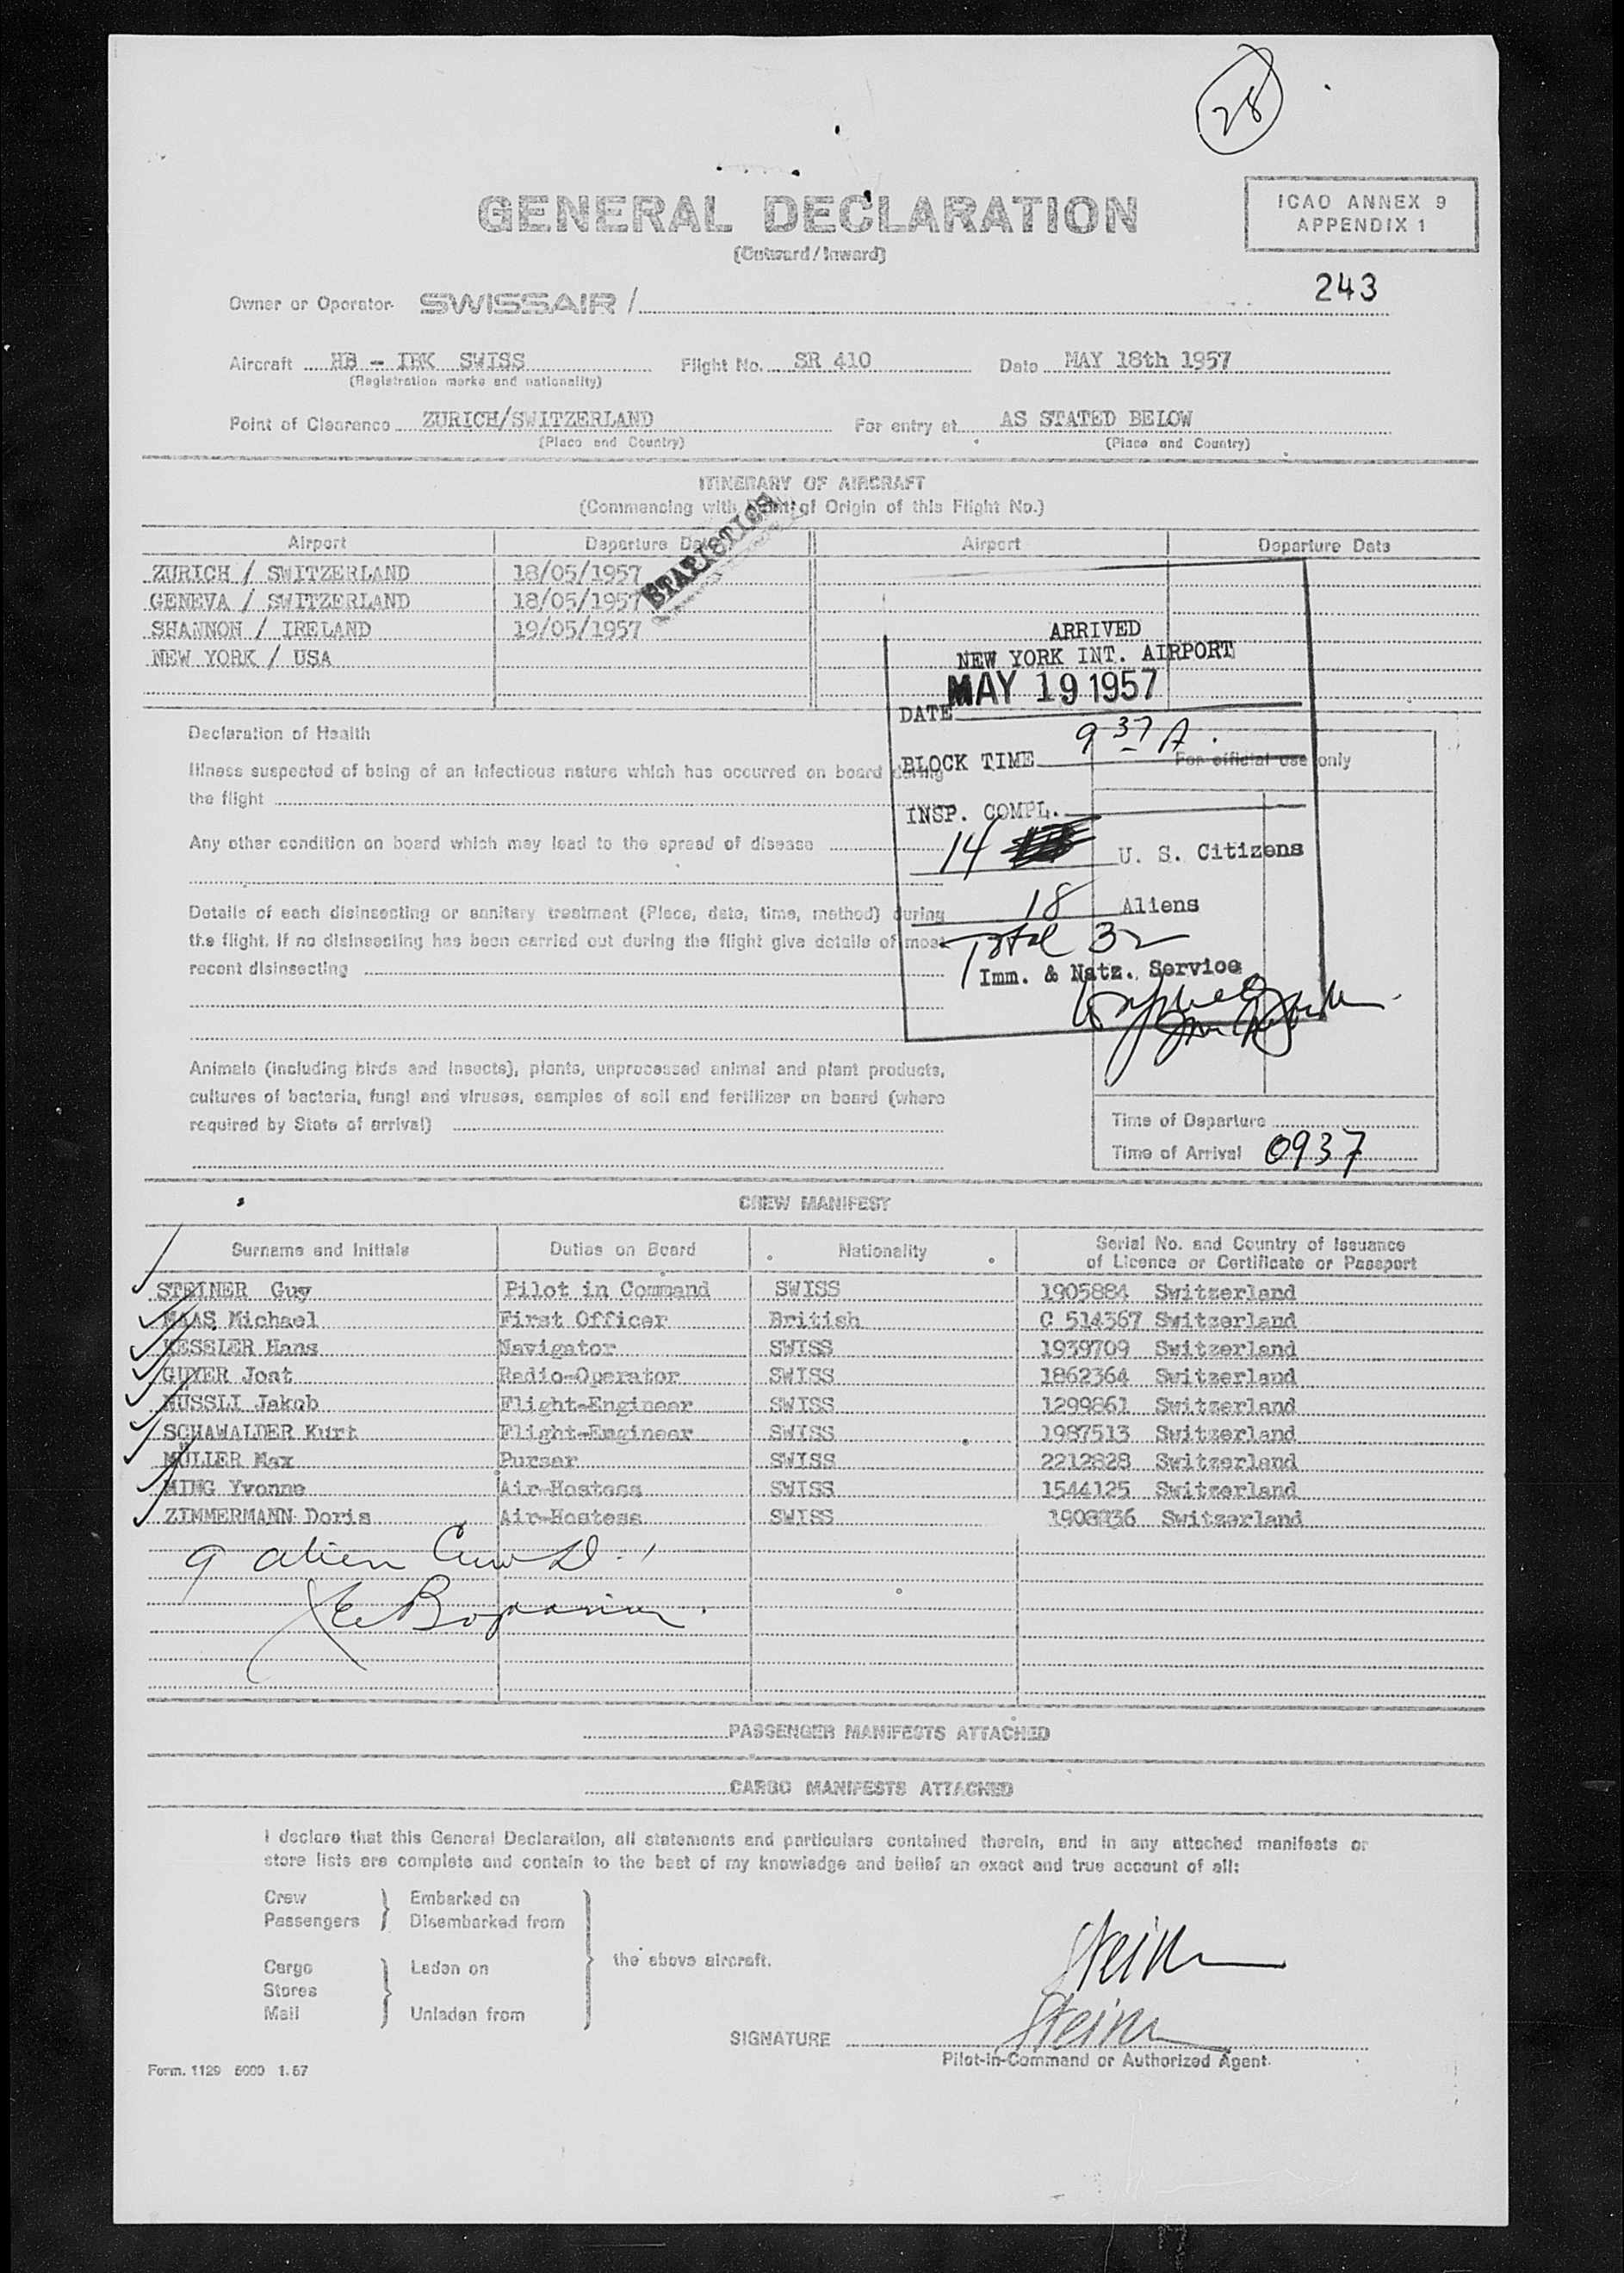 28
GENERAL DECLARATION
(Outward / Inward)
ICAO ANNEX 9
APPENDIX 1
243
Owner or Operator SWISSAIR /
Aircraft HB - IBK SWISS Flight No. SR 410 Date MAY 18th 1957
(Registration marks and nationality)
Point of Clearance ZURICH/SWITZERLAND For entry at AS STATED BELOW
(Place and Country) (Place and Country)
ITINERARY OF AIRCRAFT
(Commencing with Point of Origin of this Flight No.)
STATISTICS
Airport Departure Date Airport Departure Date
ZURICH / SWITZERLAND 18/05/1957
GENEVA / SWITZERLAND 18/05/1957
SHANNON / IRELAND 19/05/1957
NEW YORK / USA
ARRIVED
NEW YORK INT. AIRPORT
DATE MAY 19 1957
BLOCK TIME 9 37 A.
INSP. COMPL.
14 U. S. Citizens
18 Aliens
Total 32
Imm. & Natz. Service
For official use only
Declaration of Health
Illness suspected of being of an infectious nature which has occurred on board during
the flight
Any other condition on board which may lead to the spread of disease
Details of each disinsecting or sanitary treatment (Place, date, time, method) during
the flight. If no disinsecting has been carried out during the flight give details of most
recent disinsecting
Animals (including birds and insects), plants, unprocessed animal and plant products,
cultures of bacteria, fungi and viruses, samples of soil and fertilizer on board (where
required by State of arrival)
Time of Departure
Time of Arrival 0937
CREW MANIFEST
Surname and Initials Duties on Board Nationality Serial No. and Country of Issuance
of Licence or Certificate or Passport
STEINER Guy Pilot in Command SWISS 1905884 Switzerland
MAAS Michael First Officer British C 514567 Switzerland
KESSLER Hans Navigator SWISS 1939709 Switzerland
GUYER Jost Radio-Operator SWISS 1862364 Switzerland
NÜSSLI Jakob Flight-Engineer SWISS 1299861 Switzerland
SCHAWALDER Kurt Flight-Engineer SWISS 1987513 Switzerland
MÜLLER Max Purser SWISS 2212828 Switzerland
MING Yvonne Air-Hostess SWISS 1544125 Switzerland
ZIMMERMANN Doris Air-Hostess SWISS Switzerland
9 alien Crew
PASSENGER MANIFESTS ATTACHED
CARGO MANIFESTS ATTACHED
I declare that this General Declaration, all statements and particulars contained therein, and in any attached manifests or
store lists are complete and contain to the best of my knowledge and belief an exact and true account of all:
Crew Embarked on
Passengers Disembarked from
the above aircraft.
Cargo Laden on
Stores
Mail Unladen from
Steiner
Steiner
SIGNATURE
Pilot-in-Command or Authorized Agent
Form. 1129 5000 1.57